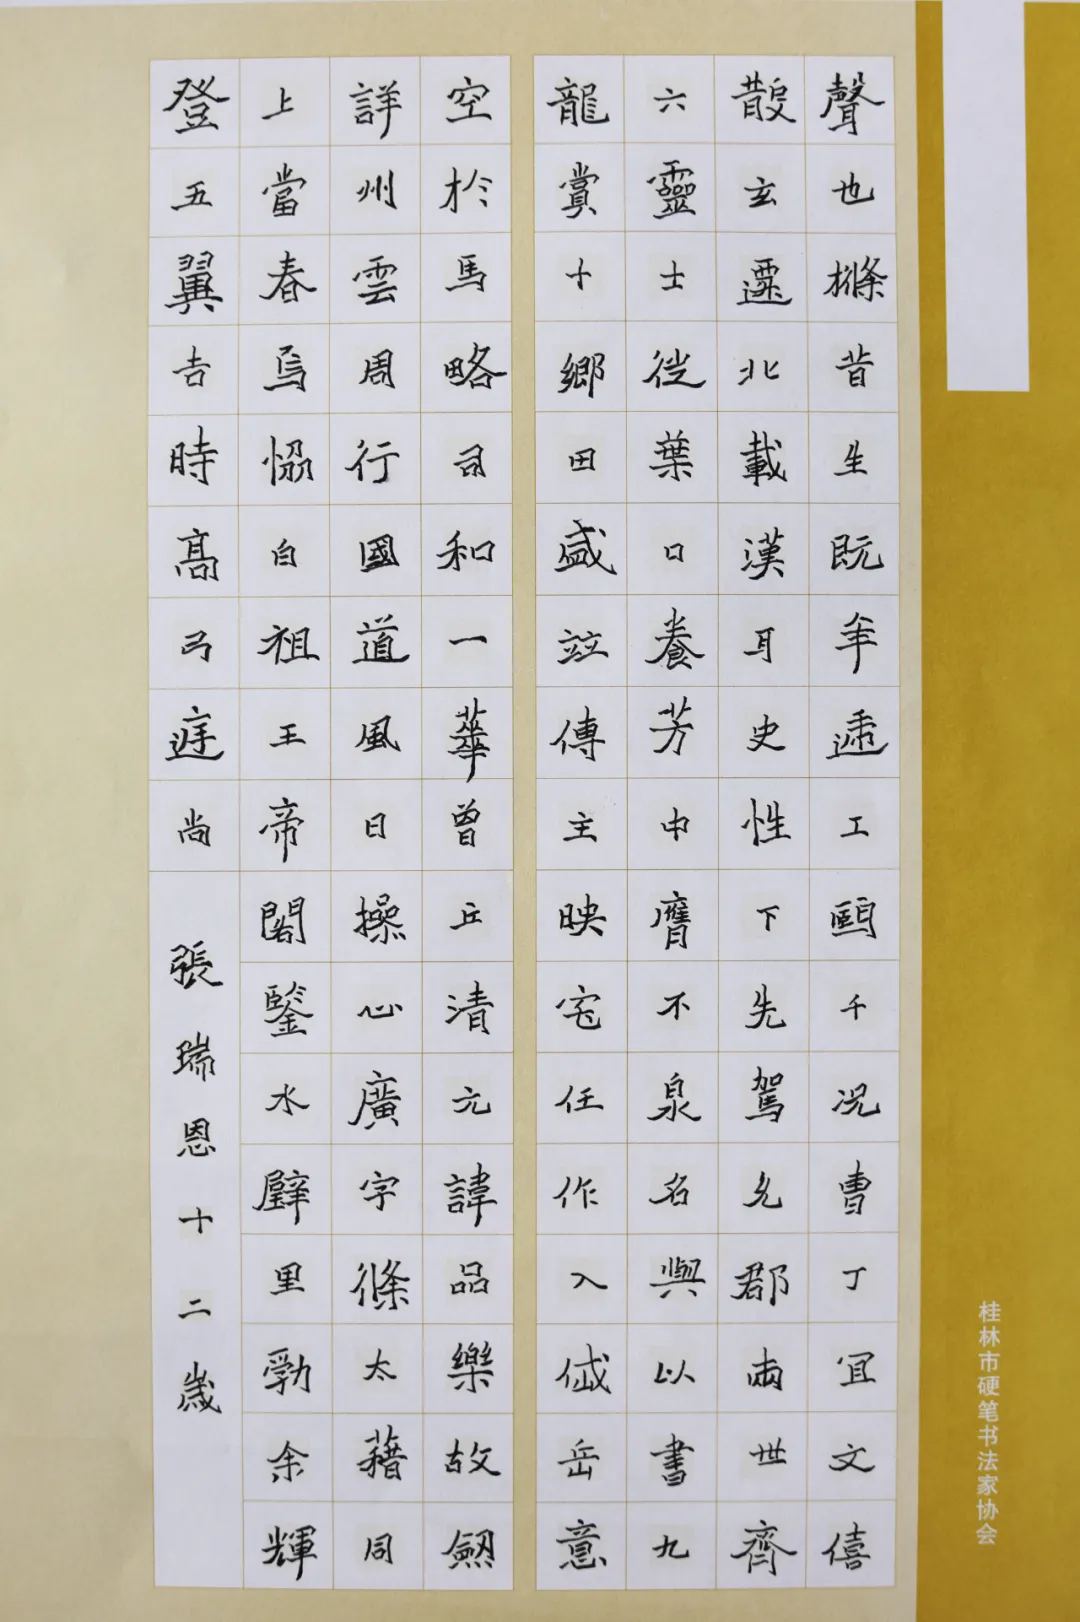 聲也滌昔生既年遞工毆千況曹丁宜文僖
散玄遝北載漢耳史性下先駕允郡兩世齊
六靈士從葉口養芳中膺不泉名與以書九
龍賞十鄉田盛竝傳主映宅任作入岱岳意
空於馬略司和一華曾丘清元諱品樂故劒
詳州雲周行國道風日操心廣字條太藉同
上當春烏惱自祖王帝閣鑒水壁里勃余輝
登五翼吉時高弓庭尚
張瑞恩十二歲
桂林市硬笔书法家协会